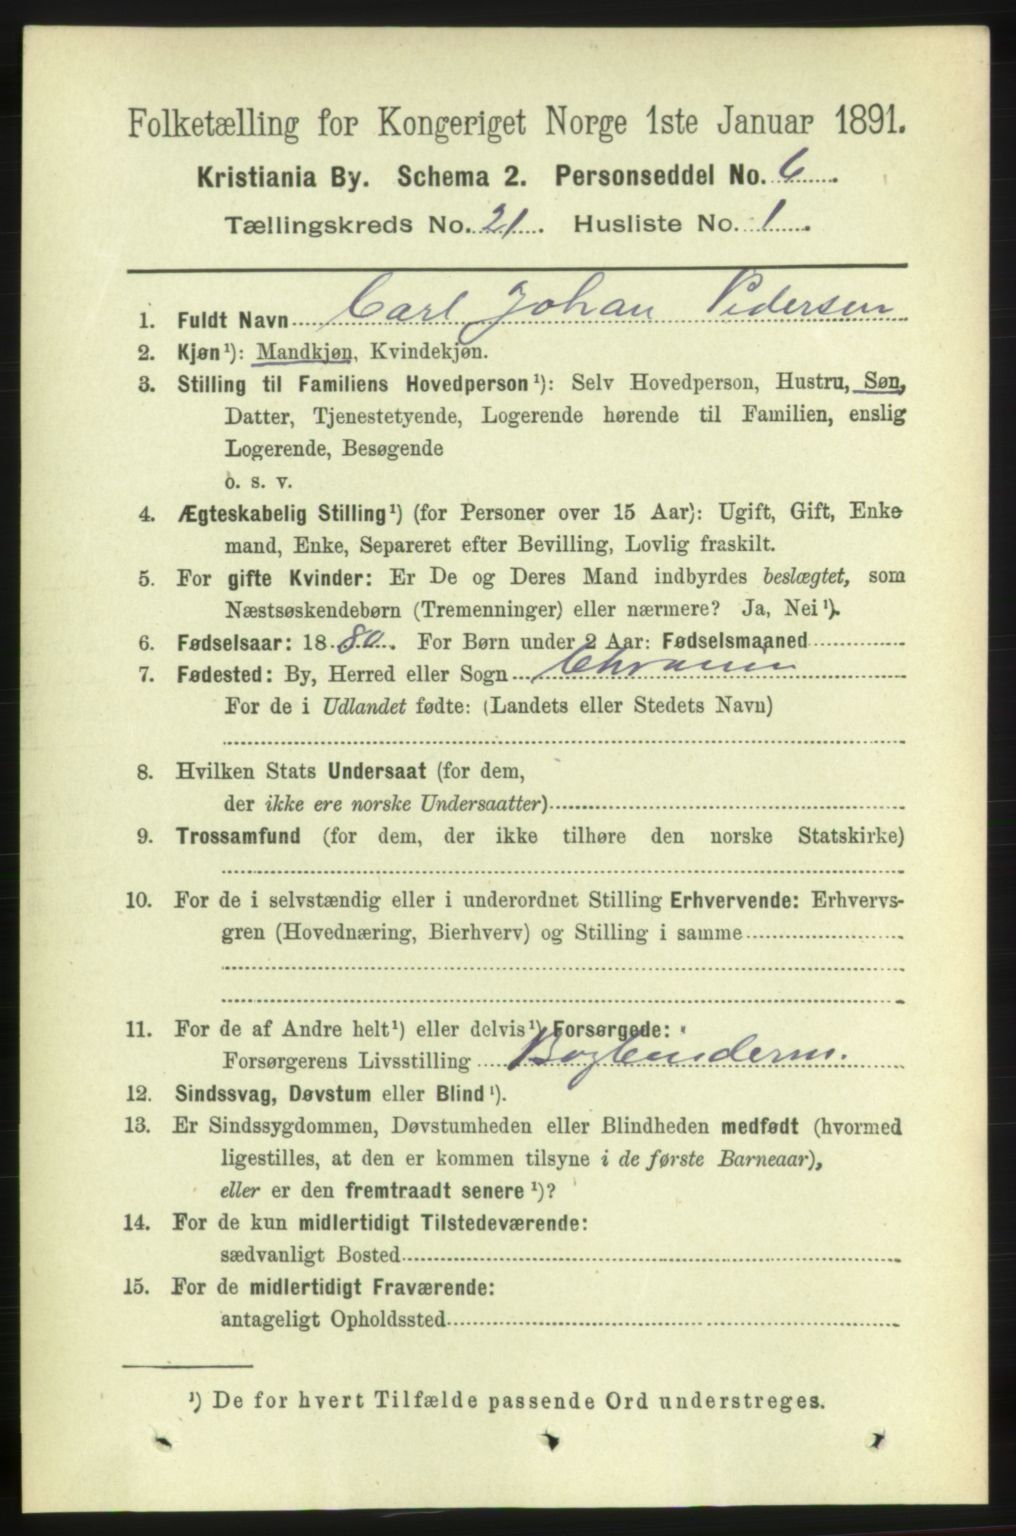 Folketælling for Kongeriget Norge 1ste Januar 1891.
Kristiania By. Schema 2. Personseddel No. 6.
Tællingskreds No. 21. Husliste No. 1.
1. Fuldt Navn Carl Johan Pedersen
2. Kjøn¹): Mandkjøn, Kvindekjøn.
3. Stilling til Familiens Hovedperson¹): Selv Hovedperson, Hustru, Søn,
Datter, Tjenestetyende, Logerende hørende til Familien, enslig
Logerende, Besøgende
o. s. v.
4. Ægteskabelig Stilling¹) (for Personer over 15 Aar): Ugift, Gift, Enke-
mand, Enke, Separeret efter Bevilling, Lovlig fraskilt.
5. For gifte Kvinder: Er De og Deres Mand indbyrdes beslægtet, som
Næstsøskendebørn (Tremenninger) eller nærmere? Ja, Nei¹).
6. Fødselsaar: 1880. For Børn under 2 Aar: Fødselsmaaned
7. Fødested: By, Herred eller Sogn
For de i Udlandet fødte: (Landets eller Stedets Navn)
8. Hvilken Stats Undersaat (for dem,
der ikke ere norske Undersaatter)
9. Trossamfund (for dem, der ikke tilhøre den norske Statskirke)
10. For de i selvstændig eller i underordnet Stilling Erhvervende: Erhvervs-
gren (Hovednæring, Bierhverv) og Stilling i samme
11. For de af Andre helt¹) eller delvis¹) Forsørgede:
Forsørgerens Livsstilling
12. Sindssvag, Døvstum eller Blind¹).
13. Er Sindssygdommen, Døvstumheden eller Blindheden medfødt (hvormed
ligestilles, at den er kommen tilsyne i de første Barneaar),
eller er den fremtraadt senere¹)?
14. For de kun midlertidigt Tilstedeværende:
sædvanligt Bosted
15. For de midlertidigt Fraværende:
antageligt Opholdssted
¹) De for hvert Tilfælde passende Ord understreges.